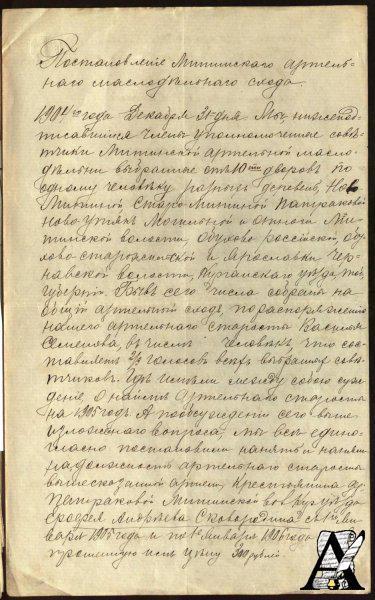 Постановленіе Митинскаго артель-
наго маслодѣльнаго схода.
1904 года Декабря 21 дня Мы нижепод-
писавшіеся члены уполномоченные совѣт-
чики Митинской артельной масло-
дѣльни выбранные отъ 10 дворовъ по
одному человѣку разныхъ деревень, Ново
Митиной Старо Митиной Патраковой
Ново-утякъ Могильной и Митинской волости, Обухово россійской, обу-
хово-старожильской и Ярославки Чер-
навской волости, Курганскаго уѣзда Тоб.
губерніи. Бывъ сего числа собраны на
общій артельный сходъ, по распоряженію
нашего артельнаго старосты Василья
Семенова, въ числѣ человѣкъ, что со-
ставляетъ 2/3 голосовъ всѣхъ выбранныхъ совѣ-
тчиковъ. Гдѣ имѣли между собою сужде-
деніе, о наймѣ артельнаго старосты
на 1905 годъ. А по обсужденіи сего выше
изложеннаго вопроса, мы всѣ едино-
гласно постановили нанять и наняли
на должность артельнаго старосты
вышесказанной артели, крестьянина д.
Патраковой Митинской вол.
Андреева Сковородина съ 1го Ян-
варя 1905 года и по 1е Января 1906 года
цѣну 300 рублей.